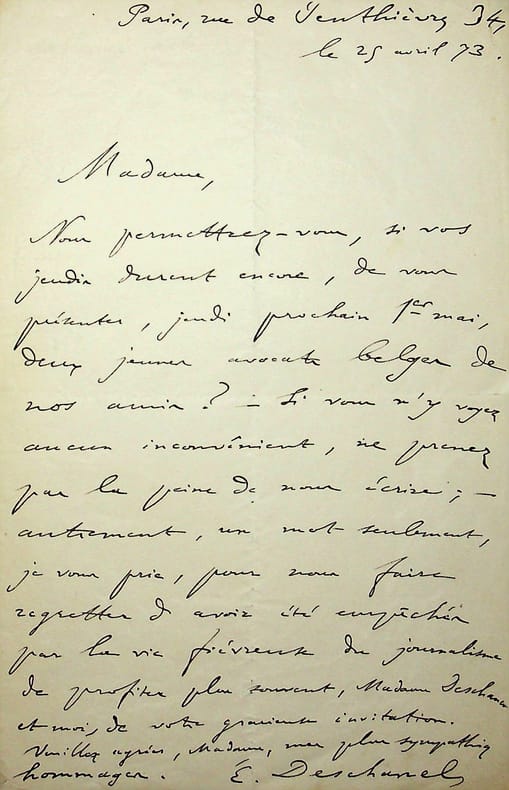 Paris, rue de Penthièvre 34,
le 25 avril 73.
Madame,
Nous permettrez-vous, si vos
jeudis durent encore, de vous
présenter, jeudi prochain 1er mai,
deux jeunes avocats belges de
nos amis ? - Si vous n'y voyez
aucun inconvénient, ne prenez
pas la peine de nous écrire ; -
autrement, un mot seulement,
je vous prie, pour nous faire
regretter d'avoir été empêchés
par la vie fiévreuse du journalisme
de profiter plus souvent, Madame Deschanel
et moi, de votre gracieuse invitation.
Veuillez agréer, Madame, mes plus sympathiq
hommages. E. Deschanel